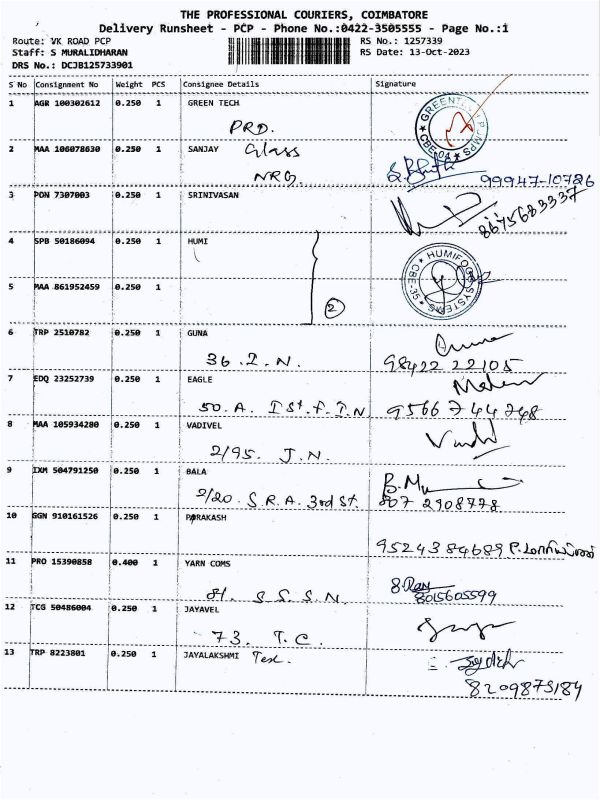 THE PROFESSIONAL COURIERS, COIMBATORE
Delivery Runsheet - PCP - Phone No.:0422-3505555 - Page No.:1
Route: VK ROAD PCP RS No.: 1257339
Staff: S MURALIDHARAN RS Date: 13-Oct-2023
DRS No.: DCJB125733901
S No Consignment No Weight PCS Consignee Details Signature
1 AGR 100302612 0.250 1 GREEN TECH
PRD.
GREENTECH PUMPS CBE-04
2 MAA 106078630 0.250 1 SANJAY Glass
NRG. 99947-10726
3 PON 7307003 0.250 1 SRINIVASAN
8675683337
4 SPB 50186094 0.250 1 HUMI
HUMIFOG SYSTEMS CBE-35
5 MAA 861952459 0.250 1
2
6 TRP 2510782 0.250 1 GUNA
36. I. N. 98422 22105
7 EDQ 23252739 0.250 1 EAGLE
50. A. I St. F. I. N 95667 44748
8 MAA 105934280 0.250 1 VADIVEL
2/95. J. N.
9 IXM 504791250 0.250 1 BALA
2/20. S. R. A. 3rd St. 807 2908778
10 GGN 910161526 0.250 1 PRAKASH
9524384689
11 PRO 15390858 0.400 1 YARN COMS
81. S. S. S. N. 8015605599
12 TCG 50486004 0.250 1 JAYAVEL
73. T. C.
13 TRP 8223801 0.250 1 JAYALAKSHMI Tex.
8209875184